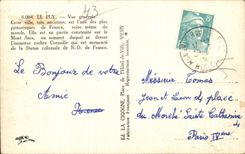 43
8.004 LE PUY. — Vue générale
Cette ville, très ancienne, est l'une des plus
pittoresques de France, voire même du
monde. Elle est en partie construite sur le
Mont Anis, au sommet duquel se dresse
l'immense rocher Corneille qui est surmonté
de la Statue colossale de N.-D. de France.
Le Bonjour de votre
Amie
Ed. LA CIGOGNE, Place de l'Hôtel-de-Ville, VICHY
Fabrication Française - Reproduction interdite
Monsieur Tomas
Jean
du Marché Sainte Catherine
Paris IVème